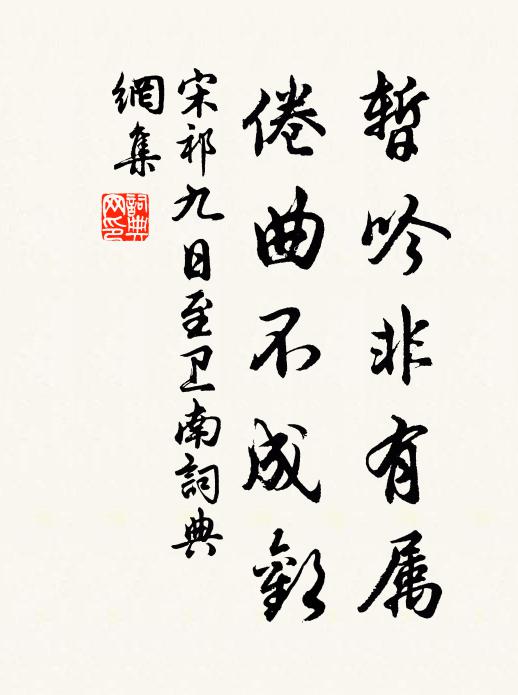 暂吟非有属
倦曲不成歡
宋祁九日至卫南詞典
網集
詞典
网印